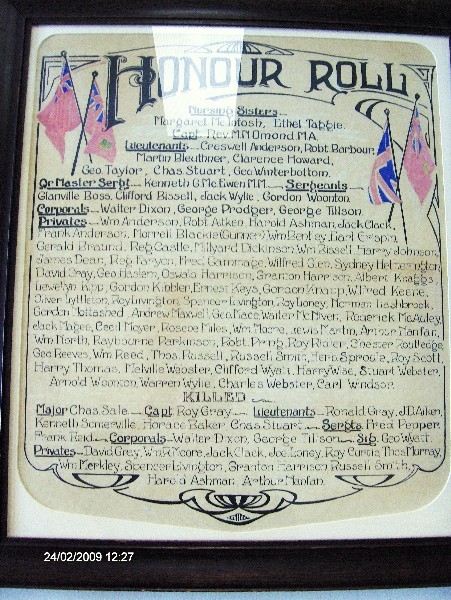 HONOUR ROLL
Nursing Sisters
Margaret McIntosh, Ethel Tabbie.
Capt. Rev. M.M. Omond M.A.
Lieutenants Creswell Anderson, Robt. Barbour,
Martin Bleuthner, Clarence Howard,
Geo. Taylor, Chas. Stuart, Geo. Winterbottom.
Qr Master Sergt. Kenneth G. McEwen M.M. Sergeants
Glanville Boss, Clifford Bissell, Jack Wylie, Gordon Woonton.
Corporals Walter Dixon, George Prodger, George Tillson.
Privates Wm. Anderson, Robt. Aitken, Harold Ashman, Jack Clark,
Frank Anderson, Morrell Blackie Wm. Bentley, Earl Crispin,
Gerald Braund, Reg. Castle, Millyard Dickinson, Wm. Bissell, Harry Johnson,
James Dean, Reg. Fred Gammage, Wilfred Glen, Sydney Hetherington,
David Gray, Geo. Haslem, Oswald Harrison, Granton Harrison, Albert Knaggs,
Llewelyn Kipp, Gordon Kibbler, Ernest Keys, Gordon Knapp, Wilfred Keene,
Oliver Lyttleton, Roy Livington, Spencer Livington, Ray Loney, Norman Lashbrook,
Gordon Andrew Maxwell, Geo. Mace, Walter McNiven, Roderick McAuley,
Jack Magee, Cecil Moyer, Roscoe Miles, Wm. Moore, Lewis Martin, Arthur Nanfan,
Wm. North, Raybourne Parkinson, Robt. Pring, Roy Rider, Chester Routledge,
Geo. Reeves, Wm. Reed, Thos. Russell, Russell Smith, Herb Sproule, Roy Scott,
Harry Thomas, Melville Wooster, Clifford Wyatt, Harry Wise, Stuart Webster,
Arnold Woonton, Warren Wylie, Charles Webster, Carl Windsor.
KILLED
Major Chas. Sale Capt. Roy Gray Lieutenants Ronald Gray, J.D. Aiken,
Kenneth Somerville, Horace Baker, Chas. Stuart Sergts. Fred Pepper,
Frank Reid Corporals Walter Dixon, George Tillson Sig. Geo. Wyatt.
Privates David Gray, Wm. R. Moore, Jack Clark, Joe Loney, Roy Curtis, Thos. Murray,
Wm. Merkley, Spencer Livington, Granton Harrison, Russell Smith,
Harold Ashman, Arthur Nanfan.
24/02/2009 12:27